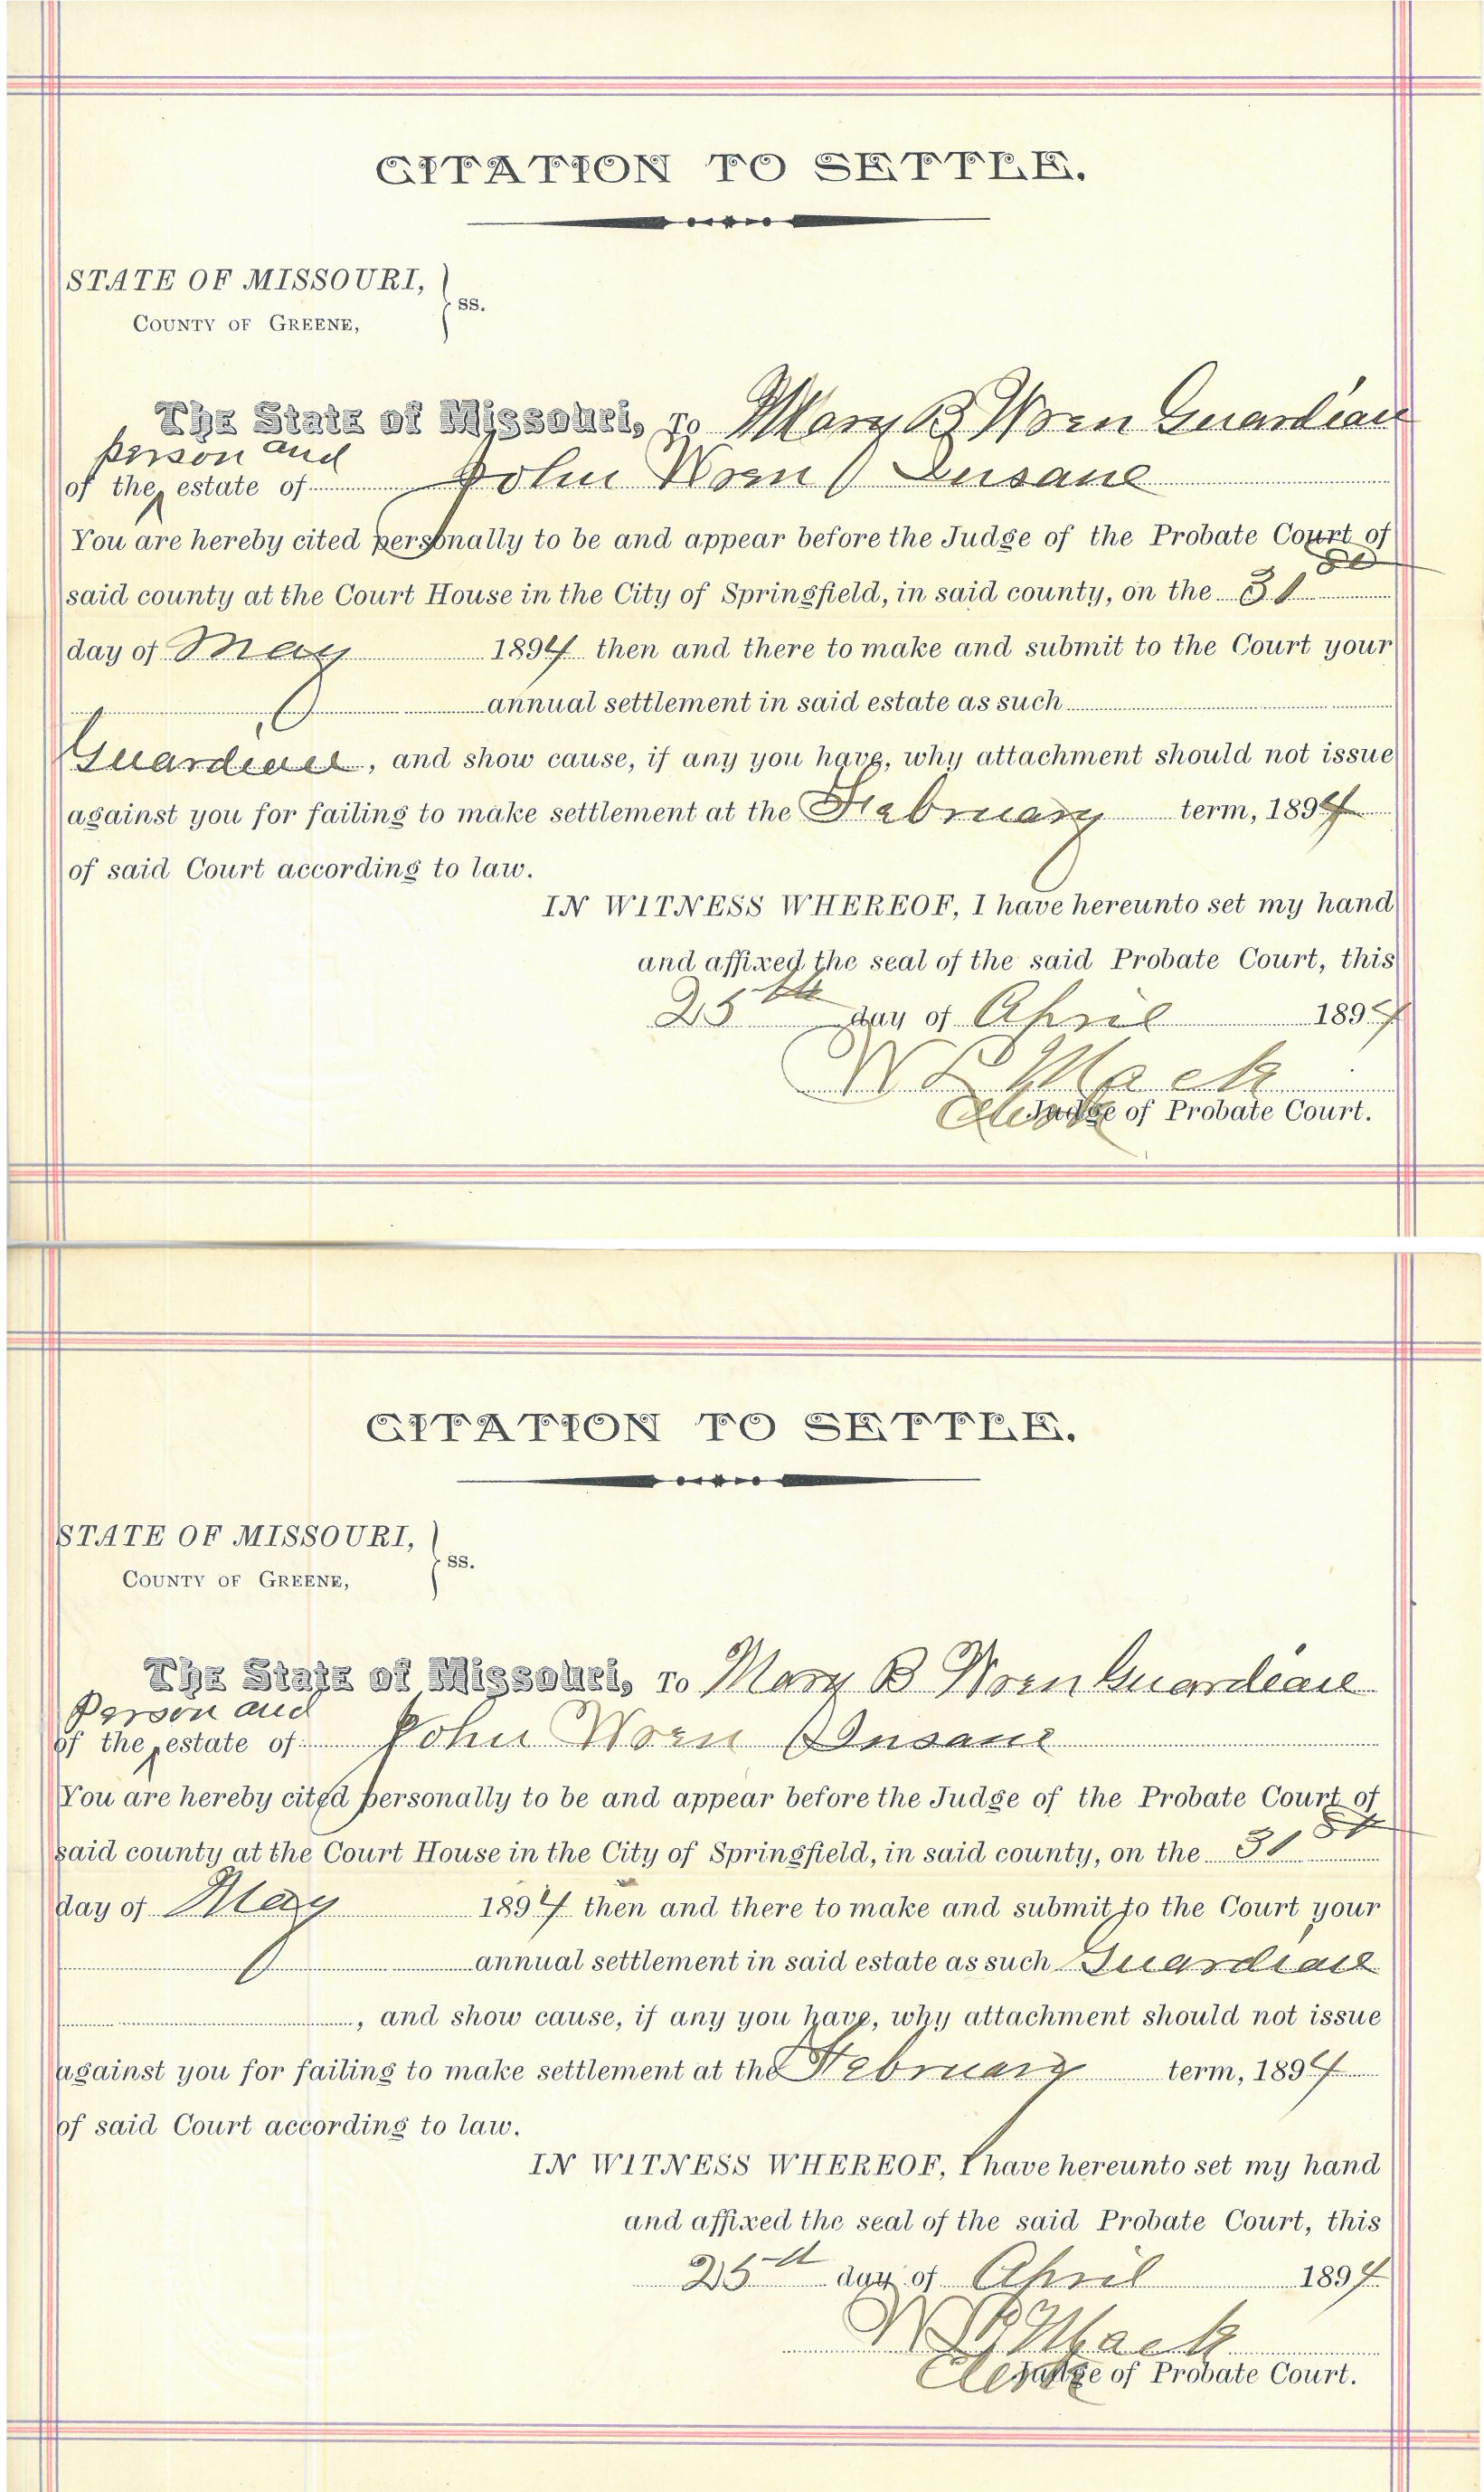 CITATION TO SETTLE.
STATE OF MISSOURI,
COUNTY OF GREENE, } ss.
The State of Missouri, To Mary B Wren Guardian
person and
of the ‸ estate of John Wren Insane
You are hereby cited personally to be and appear before the Judge of the Probate Court of
said county at the Court House in the City of Springfield, in said county, on the 31st
day of May 1894 then and there to make and submit to the Court your
annual settlement in said estate as such
Guardian, and show cause, if any you have, why attachment should not issue
against you for failing to make settlement at the February term, 1894
of said Court according to law.
IN WITNESS WHEREOF, I have hereunto set my hand
and affixed the seal of the said Probate Court, this
25th day of April 1894
W L Mack
Clerk Judge of Probate Court.
CITATION TO SETTLE.
STATE OF MISSOURI,
COUNTY OF GREENE, } ss.
The State of Missouri, To Mary B Wren Guardian
Person and
of the ‸ estate of John Wren Insane
You are hereby cited personally to be and appear before the Judge of the Probate Court of
said county at the Court House in the City of Springfield, in said county, on the 31st
day of May 1894 then and there to make and submit to the Court your
annual settlement in said estate as such Guardian
, and show cause, if any you have, why attachment should not issue
against you for failing to make settlement at the February term, 1894
of said Court according to law.
IN WITNESS WHEREOF, I have hereunto set my hand
and affixed the seal of the said Probate Court, this
25th day of April 1894
W L Mack
Clerk Judge of Probate Court.